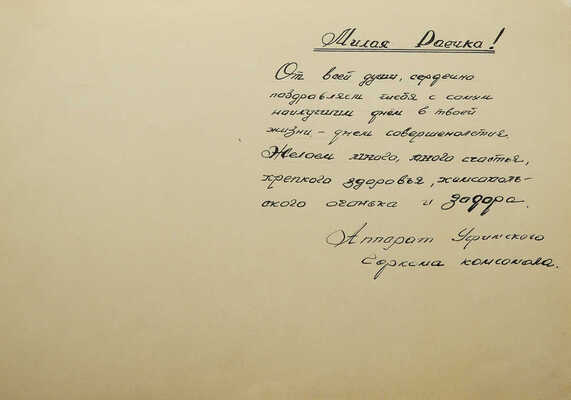 Милая Раечка!
От всей души, сердечно
поздравляем тебя с самым
наилучшим днём в твоей
жизни - днем совершенолетия.
Желаем много, много счастья,
крепкого здоровья, комсомоль-
ского огонька и задора.
Аппарат Уфимского
Горкома комсомола.